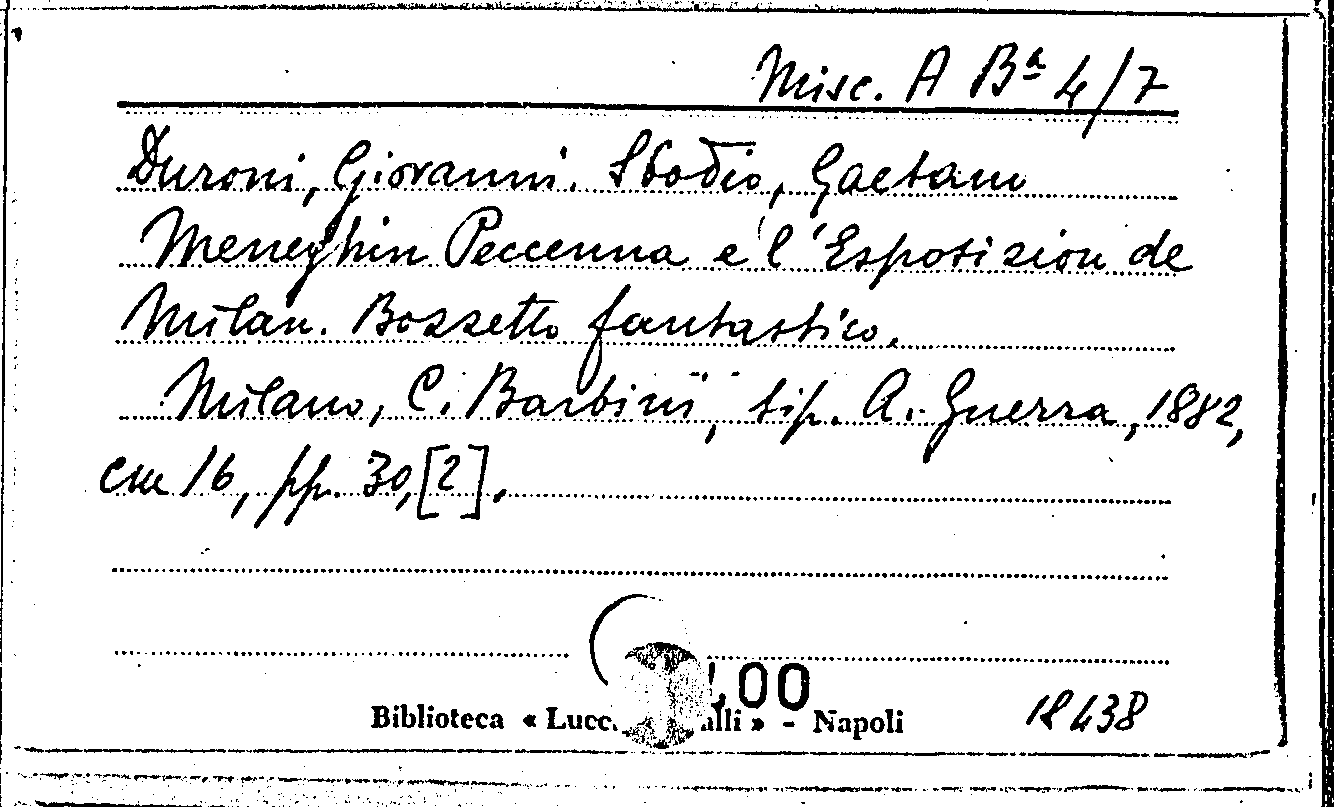 Misc. A Bª 4/7
Duroni, Giovanni. Sbodio, Gaetano
Meneghin Peccenna e l'Esposizion de
Milan. Bozzetto fantastico.
Milano, C. Barbini, tip. A. Guerra, 1882,
cm 16, pp. 30,[2].
,00
Biblioteca « Lucc alli » - Napoli
18438